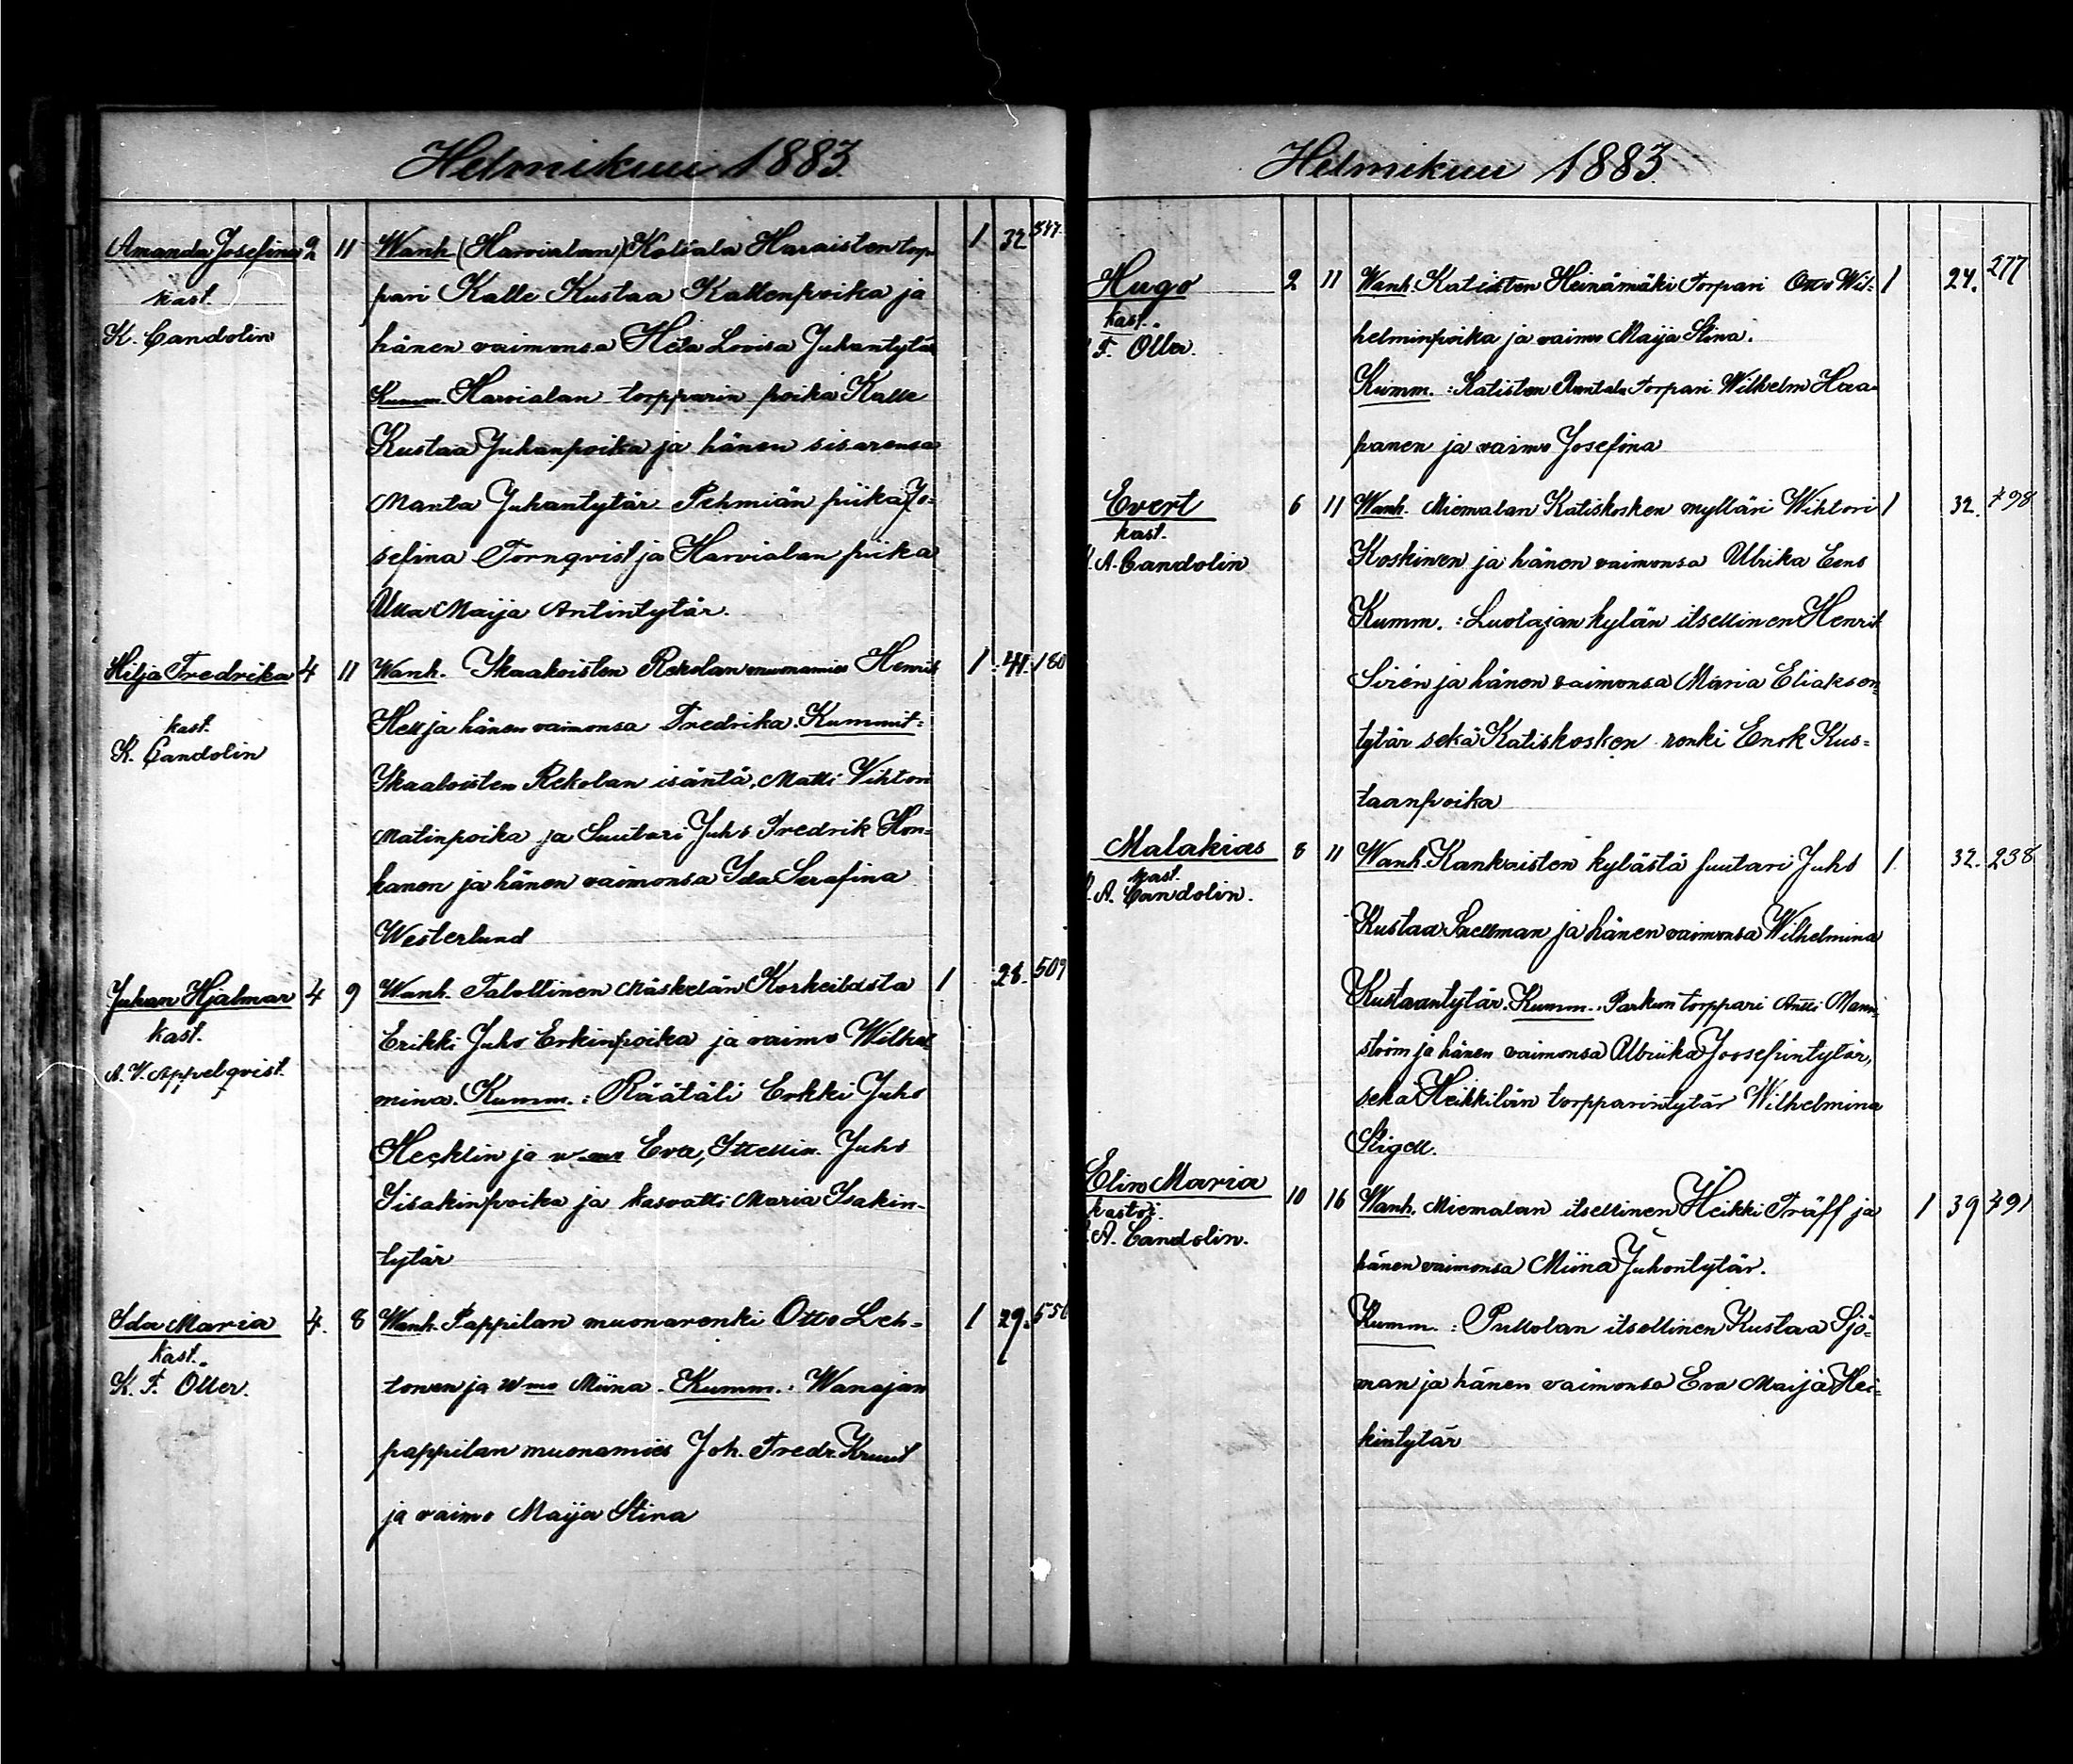 Helmikuu 1883.
Amanda Josefina 2 11 Wanh. (Harvialan) Kotsala Haraisten torp
pari Kalle Kustaa Kallenpoika ja
hänen vaimonsa Heta Lovisa Juhantytär
Kumm. Harvialan torpparin poika Kalle
Kustaa Juhanpoika ja hänen sisarensa
Manta Juhantytär Pehmiän piika Jo-
sefina Törnqvist ja Harvialan piika
Ulla Maija Antintytär.
1 32
kast.
K. Candolin
Hilja Fredrika 4 11 Wanh. Ykaakoisten Rekolan muonamies Henrik
Hell ja hänen vaimonsa Fredrika. Kummit:
Ykaaloisten Rekolan isäntä, Matti Vihtori
Matinpoika ja Suutari Juho Fredrik Hon-
kanen ja hänen vaimonsa Ida Serafina
Westerlund
1 41. 180
kast.
K. Candolin
Juhan Hjalmar 4 9 Wanh. Talollinen Mäskelän Korkeilasta
Erikki Juho Erkinpoika ja vaimo Wilhel-
mina. Kumm.: Räätäli Erkki Juho
Hecklin ja w-mo Eva, Itsellin. Juho
Iisakinpoika ja kasvatti Maria Isakin-
tytär
1 28. 509
kast.
A. V. Appelqvist.
Ida Maria 4. 8 Wanh. Pappilan muonarenki Otto Leh-
tonen ja wmo Miina. Kumm.: Wanajan
pappilan muonamies Joh. Fredr. Kruut
ja vaimo Maija Stina
1 29. 556
kast.
K. F. Oller.
Helmikuu 1883.
Hugo 2 11 Wanh. Katisten Heinämäki Torpari Otto Wil-
helminpoika ja vaimo Maija Stina.
Kumm.: Katisten Rantala Torpari Wilhelm Haa-
panen ja vaimo Josefina
1 24. 277
kast.
F. Oller.
Evert 6 11 Wanh. Miemalan Katiskosken mylläri Wihtori
Koskinen ja hänen vaimonsa Ulrika Eens
Kumm.: Luolajan kylän itsellinen Henrik
Sirén ja hänen vaimonsa Maria Eliaksen-
tytär sekä Katiskosken renki Enok Kus-
taanpoika
1 32. 498
kast.
A. Candolin
Malakias 8 11 Wanh. Kankaisten kylästä suutari Juho
Kustaa Snellman ja hänen vaimonsa Wilhelmina
Kustaantytär. Kumm.: Parkun torppari Antti Mann-
ström ja hänen vaimonsa Ulriika Joosefintytär,
sekä Heikkilän torpparintytär Wilhelmina
Stigell.
1 32. 238
kast.
A. Candolin.
Elin Maria 10 16 Wanh. Miemalan itsellinen Heikki Träff ja
hänen vaimonsa Miina Juhontytär.
Kumm.: Pullolan itsellinen Kustaa Sjö-
man ja hänen vaimonsa Eva Maija Hei-
kintytär
1 39 491
kastoi.
A. Candolin.